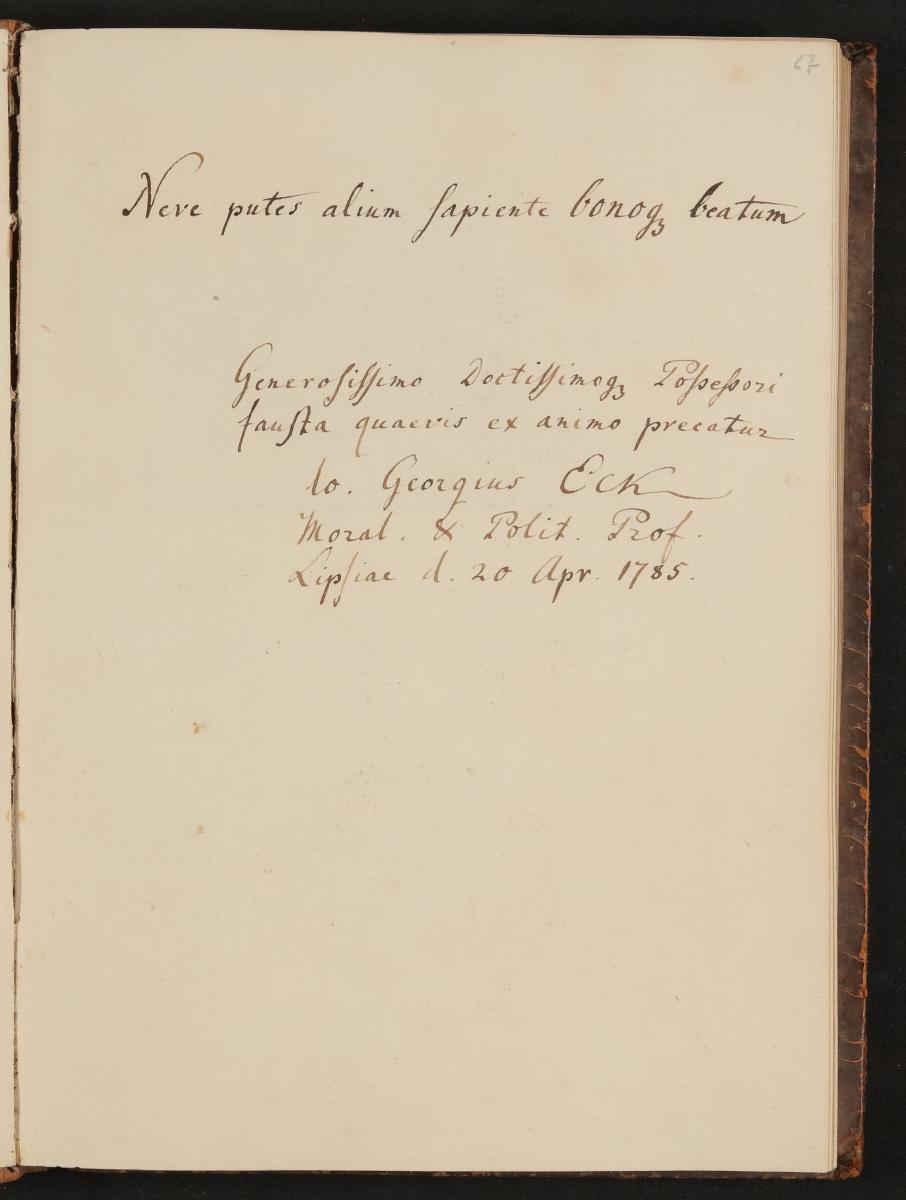 67
Neve putes alium ſapiente bonoqꝫ beatum
Generoſiſſimo Doctiſſimoqꝫ Poſseſsori
fauſta quaevis ex animo precatur
Io. Georgius Eck
Moral. & Polit. Prof.
Lipſiae d. 20 Apr. 1785.